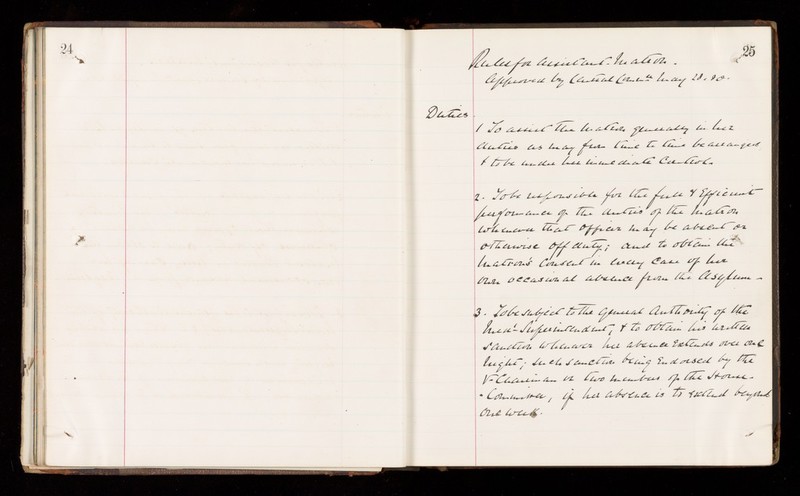 24
25
Rules for Assistant-Matron.
Approved by Central Comtee May 28. 80.
Duties
1 To assist the Matron generally in her
duties as may from time to time be arranged
& to be under her immediate Control.
2. To be responsible for the full & Efficient
performance of the duties of the Matron
whenever that Officer may be absent or
otherwise off duty; and to obtain the
Matron's Consent in every Case of her
own occasional absence from the Asylum.
3. To be subject to the General Authority of the
Medl Superintendent, & to obtain his written
Sanction whenever her absence Extends over one
night; such sanction being Endorsed by the
V-Chairman or two members of the House-
-Committee, if her absence is to extend beyond
One week.